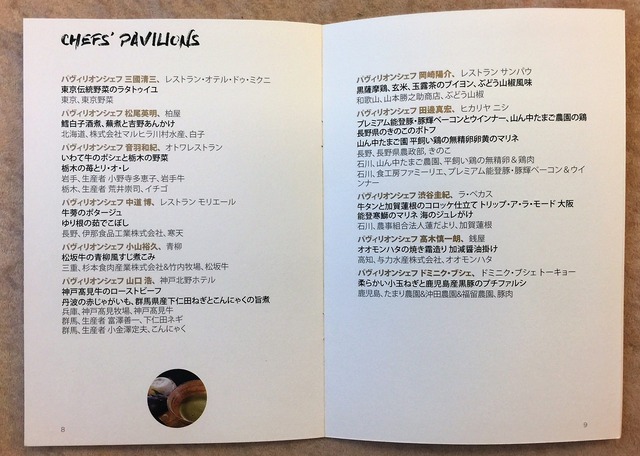 CHEFS' PAVILIONS
パヴィリオンシェフ 三國清三、レストラン・オテル・ドゥ・ミクニ
東京伝統野菜のラタトゥイユ
東京、東京野菜
パヴィリオンシェフ 松尾英明、柏屋
鱈白子酒煮、蕪煮と吉野あんかけ
北海道、株式会社マルヒラ川村水産、白子
パヴィリオンシェフ 音羽和紀、オトワレストラン
いわて牛のポシェと栃木の野菜
栃木の苺とリ・オ・レ
岩手、生産者 小野寺多恵子、岩手牛
栃木、生産者 荒井崇司、イチゴ
パヴィリオンシェフ 中道 博、レストラン モリエール
牛蒡のポタージュ
ゆり根の茹でこぼし
長野、伊那食品工業株式会社、寒天
パヴィリオンシェフ 小山裕久、青柳
松坂牛の青柳風すし煮こみ
三重、杉本食肉産業株式会社&竹内牧場、松坂牛
パヴィリオンシェフ 山口 浩、神戸北野ホテル
神戸髙見牛のローストビーフ
丹波の赤じゃがいも、群馬県産下仁田ねぎとこんにゃくの旨煮
兵庫、神戸髙見牧場、神戸髙見牛
群馬、生産者 富澤善一、下仁田ネギ
群馬、生産者 小金澤定夫、こんにゃく
8
パヴィリオンシェフ 岡崎陽介、レストラン サンパウ
黒薩摩鶏、玄米、玉露茶のブイヨン、ぶどう山椒風味
和歌山、山本勝之助商店、ぶどう山椒
パヴィリオンシェフ 田邉真宏、ヒカリヤ ニシ
プレミアム能登豚・豚輝ベーコンとウインナー、山ん中たまご農園の鶏
長野県のきのこのポトフ
山ん中たまご園 平飼い鶏の無精卵卵黄のマリネ
長野、長野県農政部、きのこ
石川、山ん中たまご農園、平飼い鶏の無精卵&鶏肉
石川、食工房ファミーリエ、プレミアム能登豚・豚輝ベーコン&ウイ
ンナー
パヴィリオンシェフ 渋谷圭紀、ラ・ベカス
牛タンと加賀蓮根のコロッケ仕立て トリップ・ア・ラ・モード 大阪
能登寒鰤のマリネ 海のジュレがけ
石川、農事組合法人蓮だより、加賀蓮根
パヴィリオンシェフ 髙木慎一朗、銭屋
オオモンハタの焼き霜造り 加減醤油掛け
高知、与力水産株式会社、オオモンハタ
パヴィリオンシェフ ドミニク・ブシェ、ドミニク・ブシェ トーキョー
柔らかい小玉ねぎと鹿児島産黒豚のプチファルシ
鹿児島、たまり農園&沖田農園&福留農園、豚肉
9